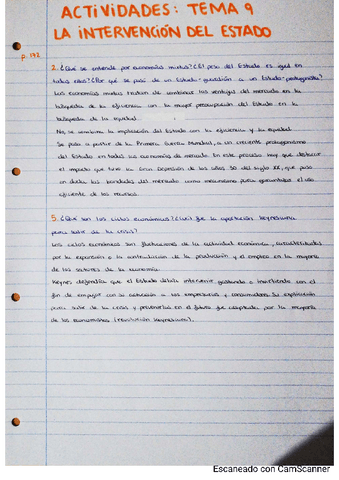 ACTIVIDADES: TEMA 9
LA INTERVENCIÓN DEL ESTADO
P 192
2. ¿Qué se entiende por economías mixtas? ¿El peso del Estado es igual en
todas ellas? ¿Por qué se pasó de un Estado-guardián a un Estado-protagonista?
Las economías mixtas tratan de combinar las ventajas del mercado en la
búsqueda de la eficiencia con la mayor preocupación del Estado en la
búsqueda de la equidad.
No, se combina la implicación del Estado con la eficiencia y la equidad.
Se pasa a partir de la Primera Guerra Mundial, a un creciente protagonismo
del Estado en todas las economías de mercado. En este proceso hay que destacar
el impacto que tuvo la Gran Depresión de los años 30 del siglo XX, que puso
en duda las bondades del mercado como mecanismo para garantizar el uso
eficiente de los recursos.
5. ¿Qué son los ciclos económicos? ¿Cuál fue la aportación keynesiana
para salir de la crisis?
Los ciclos económicos son fluctuaciones de la actividad económica, caracterizadas
por la expansión o la contracción de la producción y el empleo en la mayoría
de los sectores de la economía.
Keynes defendía que el Estado debía intervenir gastando e invirtiendo con el
fin de empujar con su actuación a los empresarios y consumidores. Su explicación
para salir de la crisis y prevenirlas en el futuro fue adoptada por la mayoría
de los economistas (revolución keynesiana).
Escaneado con CamScanner